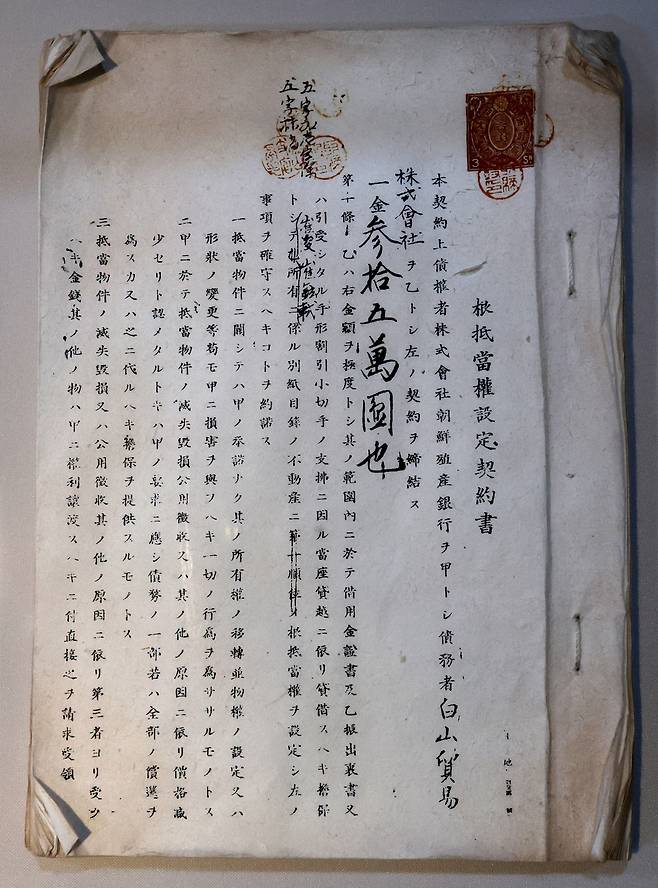 根抵當權設定契約書
本契約上債權者株式會社朝鮮殖產銀行ヲ甲トシ債務者白山貿易
株式會社ヲ乙トシ左ノ契約ヲ締結ス
一金參拾五萬圓也
第十條 乙ハ右金額ヲ極度トシ其ノ範圍內ニ於テ借用金證書及乙振出裏書又
ハ引受シタル手形割引小切手ノ支拂ニ因ル當座貸越ニ依リ貸借スヘキ擔保
トシテ 所有ニ係ル別紙目錄ノ不動產ニ 根抵當權ヲ設定シ左ノ
事項ヲ確守スヘキコトヲ約諾ス
一抵當物件ニ關シテハ甲ノ承諾ナク其ノ所有權ノ移轉並物權ノ設定又ハ
形狀ノ變更等苟モ甲ニ損害ヲ與フヘキ一切ノ行爲ヲ爲ササルモノトス
二甲ニ於テ抵當物件ノ滅失毀損公用徵收又ハ其ノ他ノ原因ニ依リ價格減
少セリト認メタルトキハ甲ノ要求ニ應シ債務ノ一部若ハ全部ノ償還ヲ
爲ス力又ハ之ニ代ルヘキ擔保ヲ提供スルモノトス
三抵當物件ノ滅失毀損又ハ公用徵收其ノ他ノ原因ニ依リ第三者ヨリ受ク
ヘキ金錢其ノ他ノ物ハ甲ニ權利讓渡スヘキニ付直接之ヲ請求受領